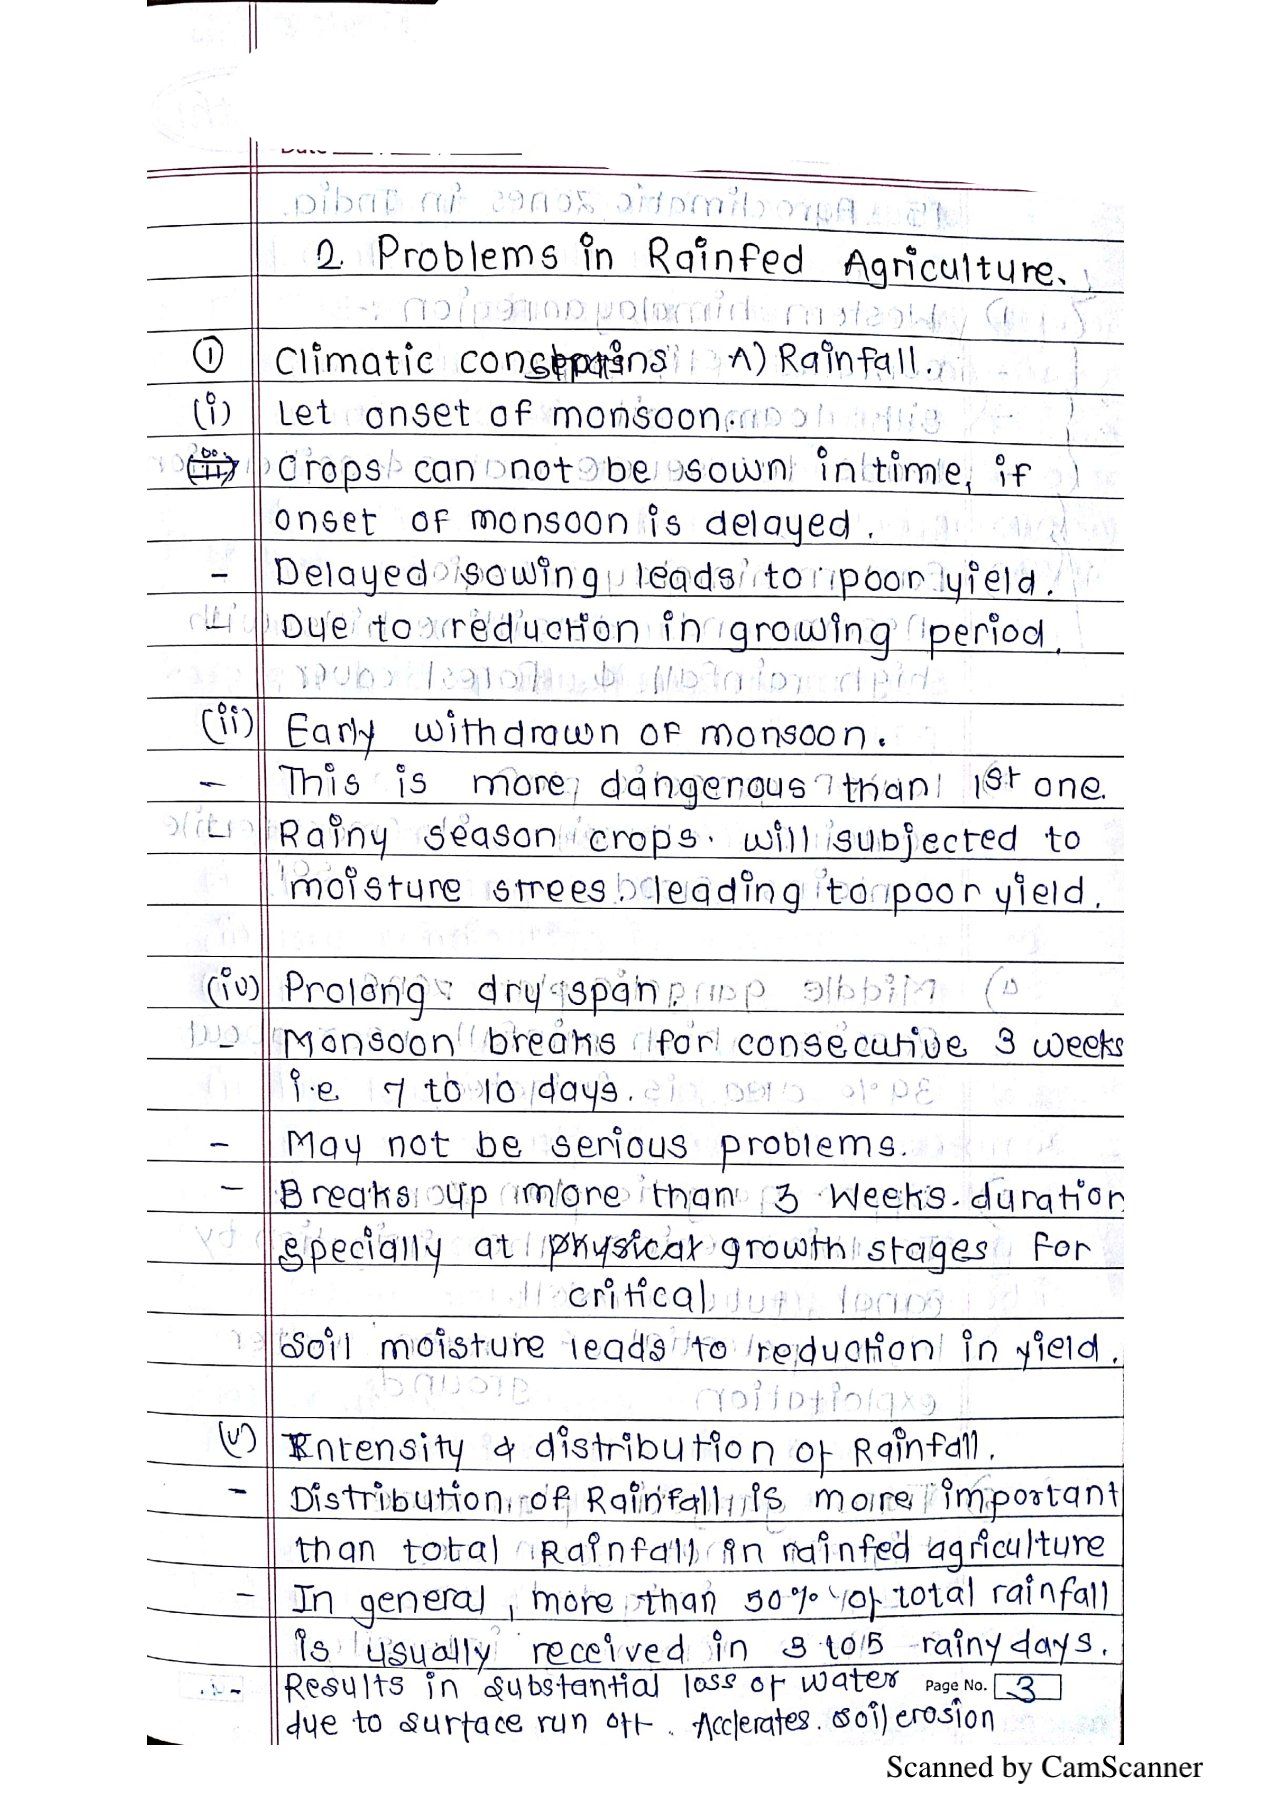 2. Problems in Rainfed Agriculture.
① Climatic A) Rainfall.
(i) Let onset of monsoon.
Crops can not be sown in time, if
onset of monsoon is delayed.
- Delayed sowing leads to poor yield.
- Due to reduction in growing period.
(ii) Early withdrawn of monsoon.
- This is more dangerous than 1st one.
- Rainy season crops. will subjected to
moisture strees leading to poor yield.
(iv) Prolong dry span.
- Monsoon breaks for consecutive 3 weeks
i.e 7 to 10 days.
- May not be serious problems.
- Breaks up more than 3 weeks. duration
especially at physical growth stages for
critical
soil moisture leads to reduction in yield.
(v) Intensity & distribution of Rainfall.
- Distribution of Rainfall is more important
than total Rainfall in rainfed agriculture
- In general, more than 50% of total rainfall
is usually received in 3 to 5 rainy days.
- Results in substantial loss of water Page No. 3
due to surface run off. Acclerates. soil erosion
Scanned by CamScanner